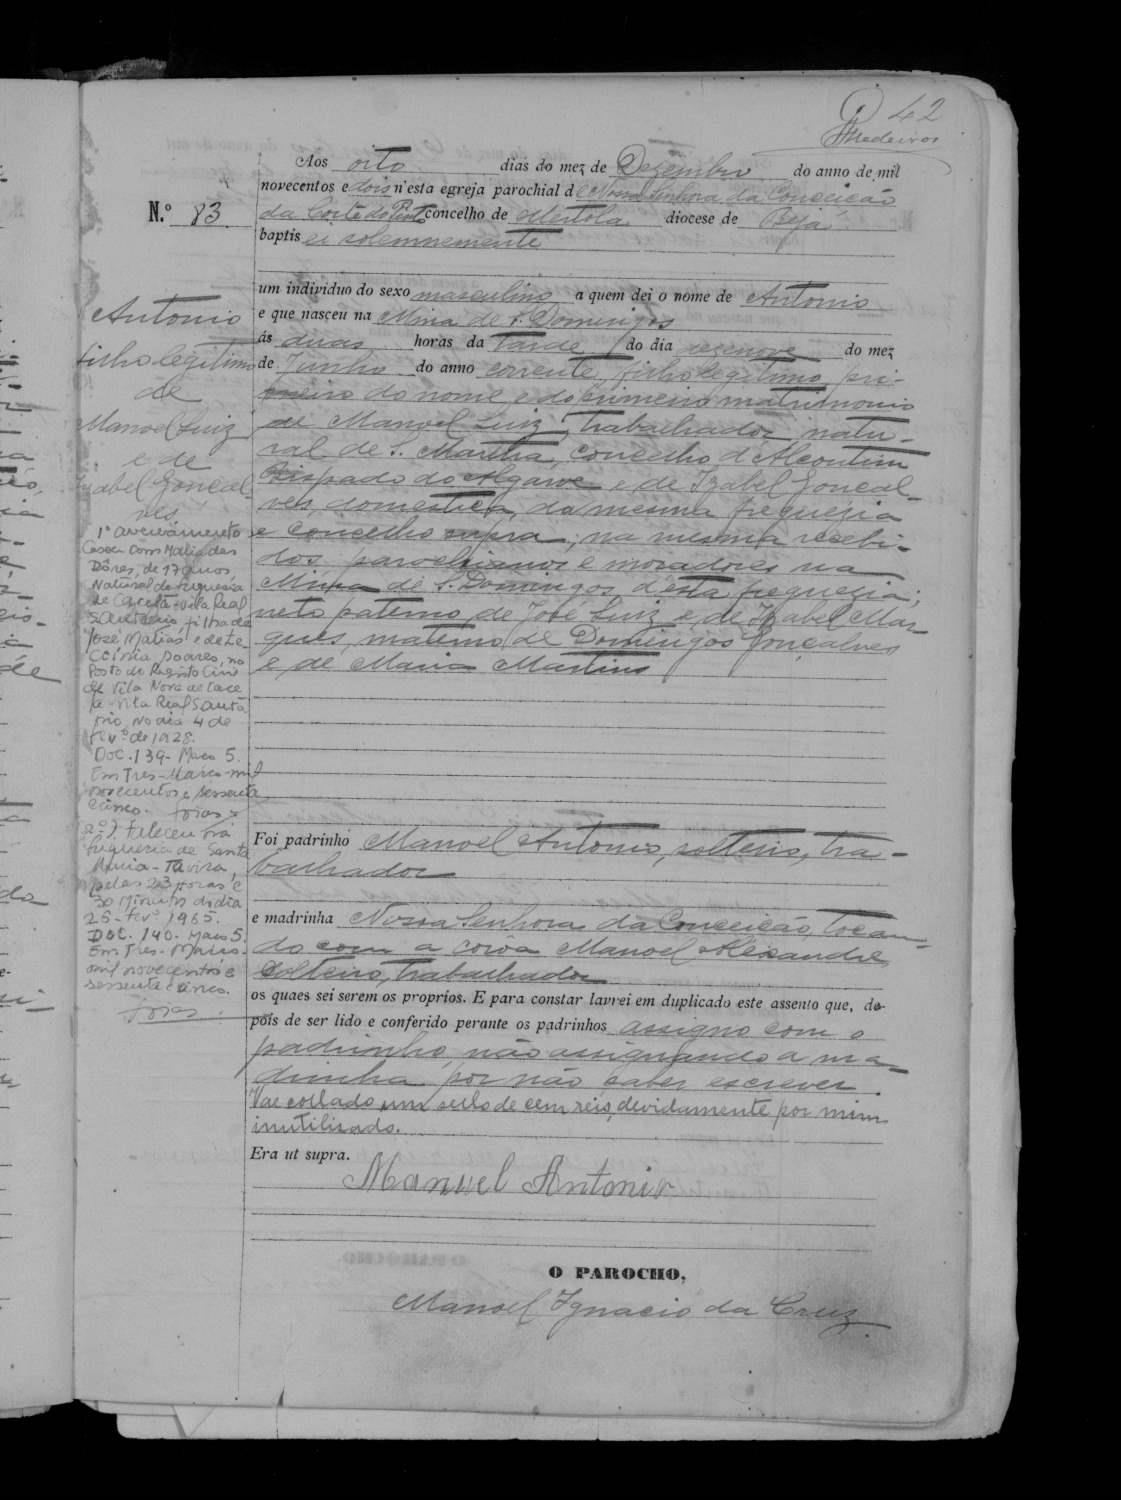 42
Medeiros
Aos oito dias do mez de Dezembro do anno de mil
novecentos e dois n'esta egreja parochial de Nossa Senhora da Conceição
N.º 83
da Corte do Pinto concelho de Mertola diocese de Beja
baptisei solemnemente
um individuo do sexo masculino a quem dei o nome de Antonio
e que nasceu na Mina de S. Domingos
ás duas horas da tarde do dia dezenove do mez
de Junho do anno corrente, filho legitimo pri-
meiro do nome e do primeiro matrimonio
de Manoel Luiz, trabalhador, natu-
ral de S. Martha, concelho d'Alcoutim
Bispado do Algarve e de Izabel Gonçal-
ves, domestica, da mesma freguezia
e concelho supra; na mesma recebi-
dos, parochianos e moradores na
Mina de S. Domingos, d'esta freguezia;
neto paterno de José Luiz e de Izabel Mar-
ques, materno de Domingos Gonçalves
e de Maria Martins
Foi padrinho Manoel Antonio, solteiro, tra-
balhador
e madrinha Nossa Senhora da Conceição, tocan-
do com a corôa Manoel Alexandre,
solteiro, trabalhador
os quaes sei serem os proprios. E para constar lavrei em duplicado este assento que, de-
pois de ser lido e conferido perante os padrinhos assigno com o
padrinho, não assignando a ma-
drinha por não saber escrever.
Vae collado um sello de cem reis, devidamente por mim
inutilisado.
Era ut supra.
Manuel Antonio
O PAROCHO,
Manoel Ignacio da Cruz
Antonio
filho legitimo
de
Manoel Luiz
e de
Izabel Gonçal
ves
1º averbamento
Casou com Maria das
Dôres, de 17 anos
natural da freguesia
de Cacela-Vila Real
Santo Antonio, filha de
José Matias e de Le
cónia Soares, no
Posto do Registo Civil
de Vila Nova de Cace
la-Vila Real Santo An
tónio, no dia 4 de
Fevº de 1928.
Doc. 139- Maço 5.
Em Tres-Março-mil
novecentos e sessenta
e cinco.
2º) Faleceu na
freguesia de Santa
Maria-Tavira,
pelas 23 horas e
30 minutos do dia
25-Fevº 1965.
Doc. 140- Maço 5.
Em Tres-Março-
mil novecentos e
sessenta e cinco.